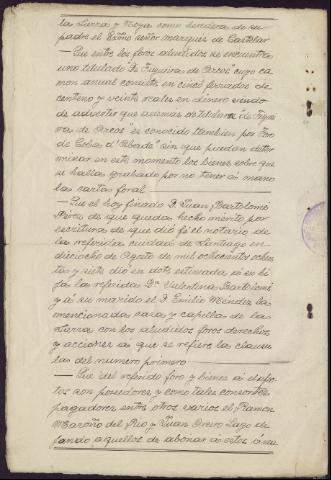 la Lurra y Noya como heredera de su
padre el Exmo señor marqués de Castelar
— Que entre los foros aludidos se encuentra
uno titulado "De Figueira de Arcos" cuyo ca
non anual consiste en cinco ferrados de
centeno y veinte reales en dinero siendo
de advertir que además de titularse "de Figuei
ras de Arcos" es conocido tambien por Foro
de Cobas d'Abade" sin que puedan deter
minar en este momento los bienes sobre que
se halla grabado por no tener á mano
las cartas foral
— Que el hoy finado D. Juan Bartolomé
Pérez de que queda hecho mérito por
escritura de que dió fé el notario de
la referida ciudad de Santiago en
dieciocho de Agosto de mil ochocientos ochen
ta y siete dió en dote estimada á su hi
ja la referida Dª Valentina Bartolomé
y á su marido el D. Emilio Méndez la
mencionada casa y capilla de la
Lurra con los aludidos foros derechos
y acciones á que se refiere la clausu
las del numero primero
— Que del referido foro y bienes á él afec
tos son poseedores y como tales consortes
pagadores entre otros varios el Ramon
Maroño del Rio y Juan Oreiro Lago de
jando aquellos de abonar á estos